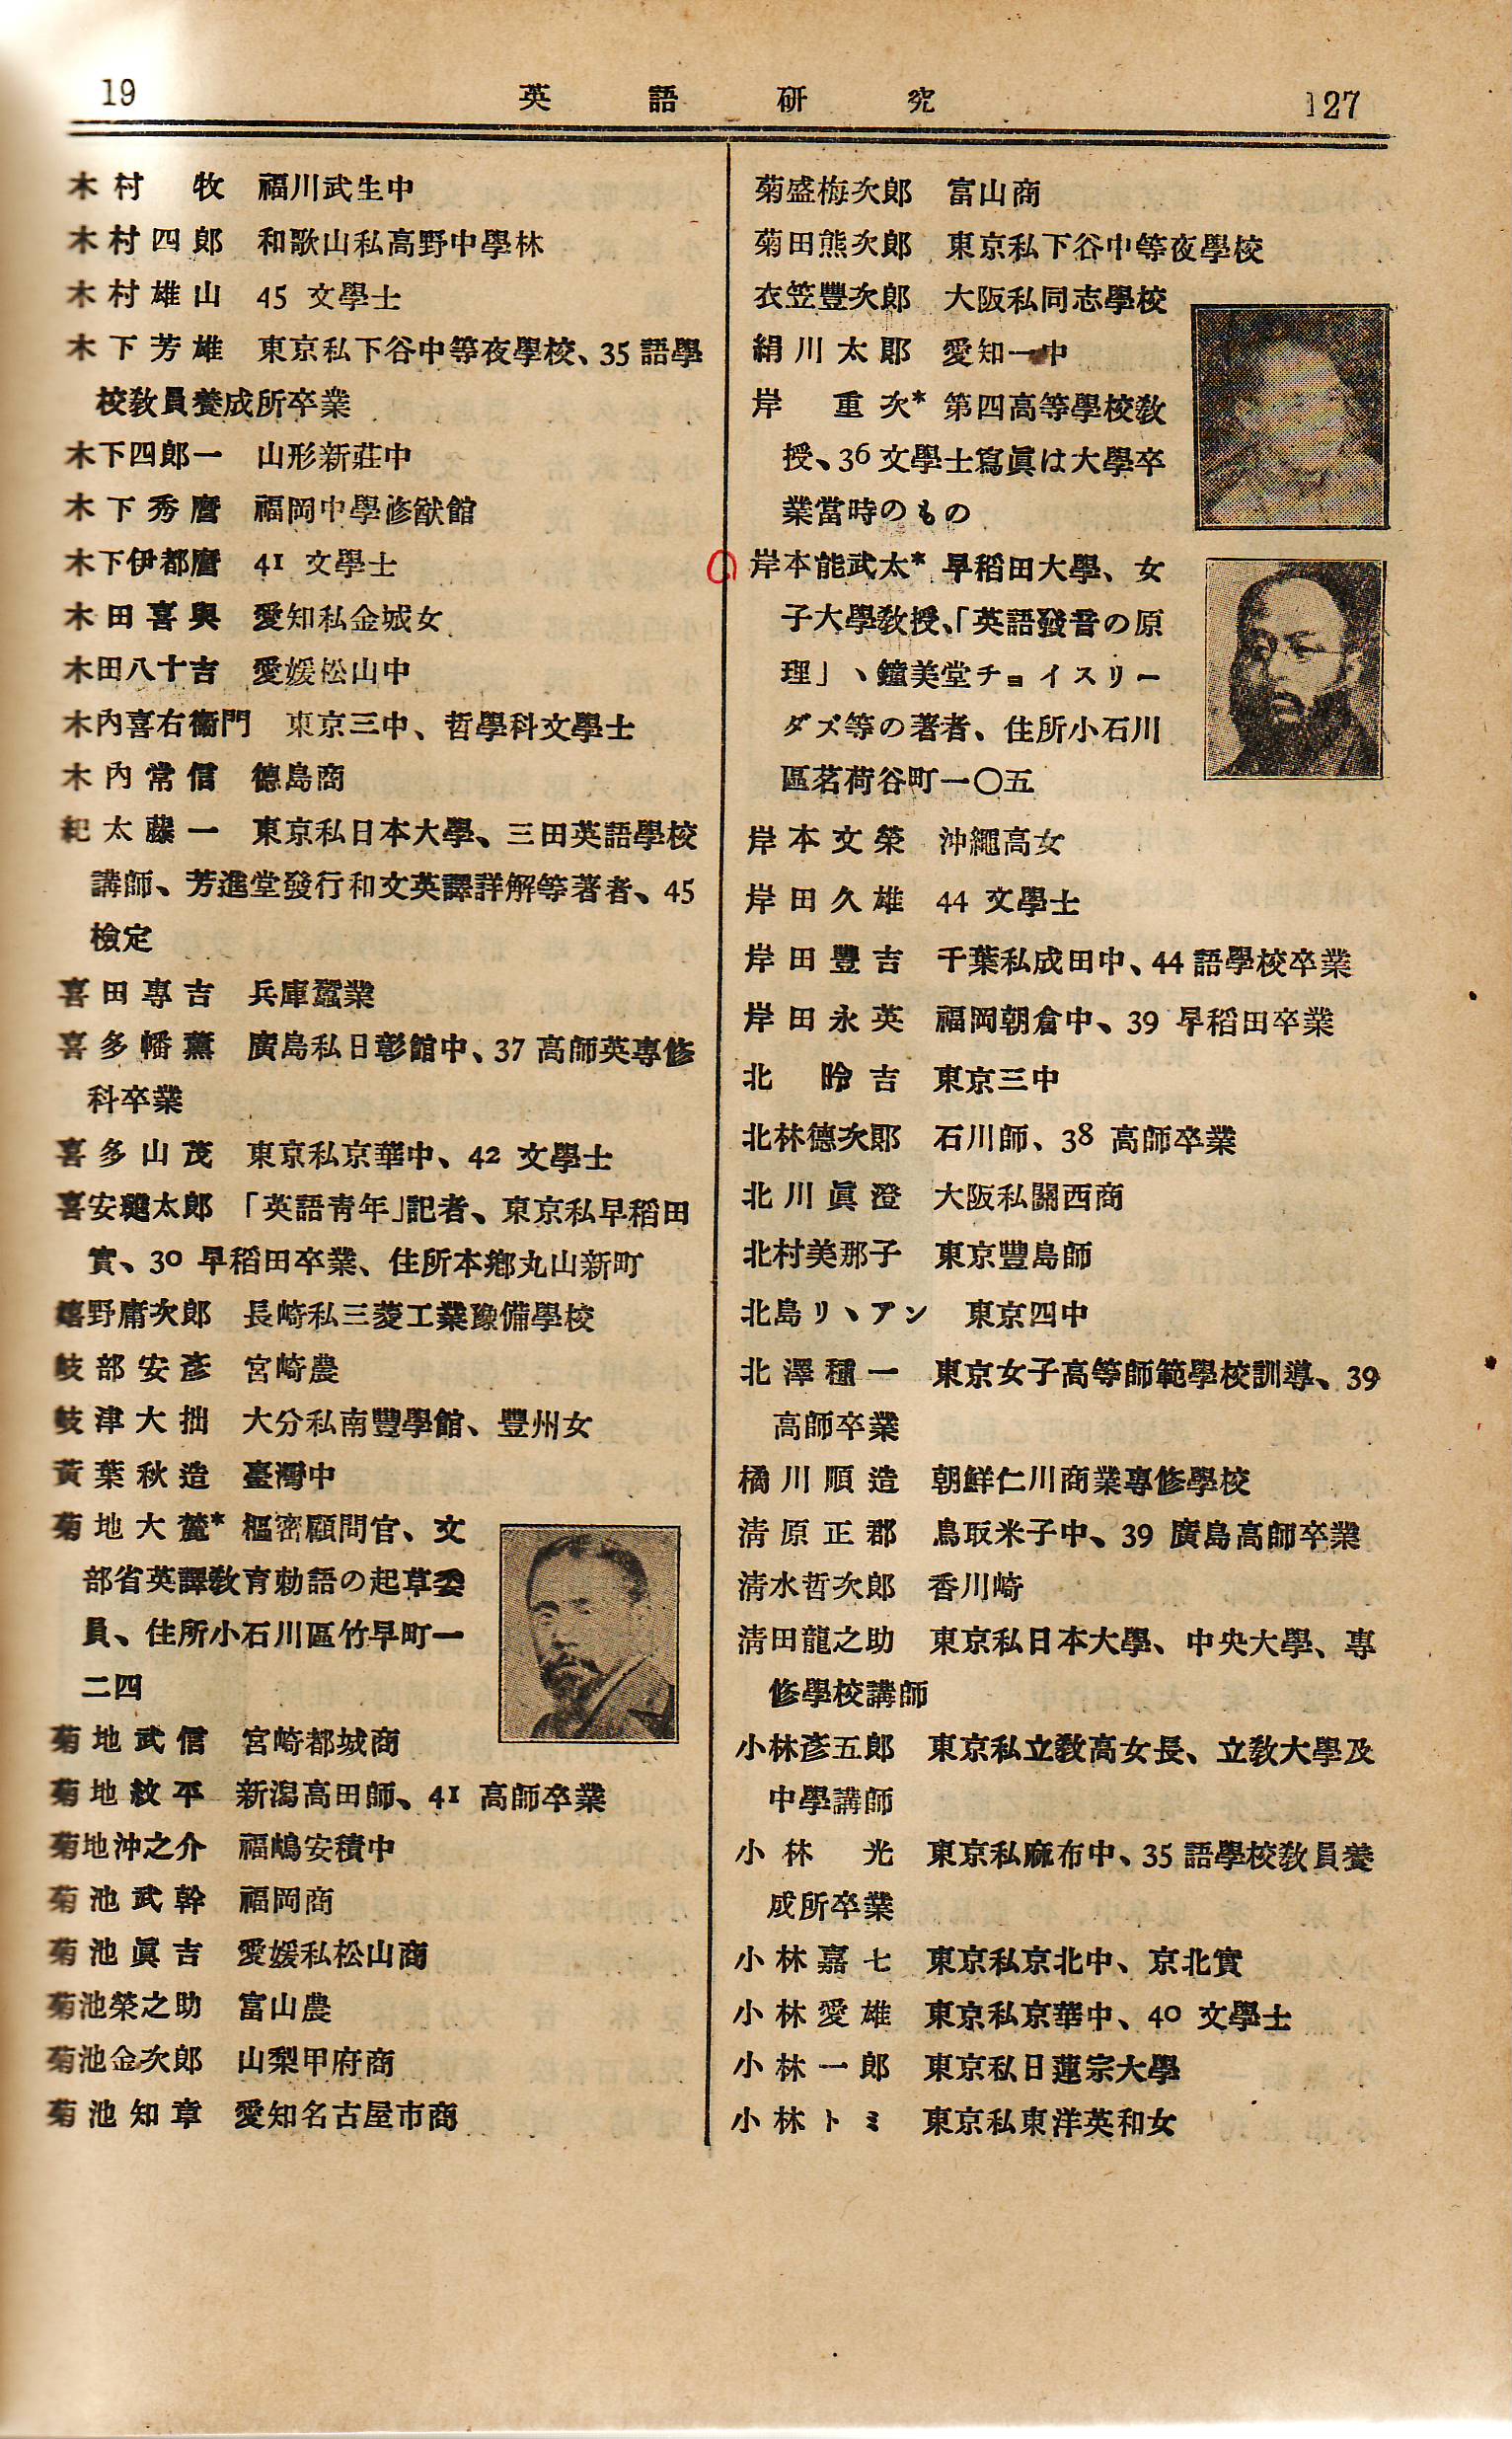 19 英語研究 127
木村 牧 福川武生中
木村四郎 和歌山私高野中學林
木村雄山 45 文學士
木下芳雄 東京私下谷中等夜學校、35語學
校敎員養成所卒業
木下四郎一 山形新莊中
木下秀麿 福岡中學修猷館
木下伊都麿 41 文學士
木田喜與 愛知私金城女
木田八十吉 愛媛松山中
木內喜右衞門 東京三中、哲學科文學士
木內常信 德島商
紀太藤一 東京私日本大學、三田英語學校
講師、芳進堂發行和文英譯詳解等著者、45
檢定
喜田專吉 兵庫蠶業
喜多幡薰 廣島私日彰館中、37高師英專修
科卒業
喜多山茂 東京私京華中、42 文學士
喜安璡太郎 「英語靑年」記者、東京私早稻田
實、30 早稻田卒業、住所本鄕丸山新町
嬉野庸次郎 長崎私三菱工業豫備學校
岐部安彥 宮崎農
岐津大拙 大分私南豐學館、豐州女
黃葉秋造 臺灣中
菊地大麓* 樞密顧問官、文
部省英譯敎育勅語の起草委
員、住所小石川區竹早町一
二四
菊地武信 宮崎都城商
菊地紋平 新潟高田師、41 高師卒業
菊地沖之介 福嶋安積中
菊池武幹 福岡商
菊池眞吉 愛媛私松山商
菊池榮之助 富山農
菊池金次郎 山梨甲府商
菊池知章 愛知名古屋市商
菊盛梅次郎 富山商
菊田熊次郎 東京私下谷中等夜學校
衣笠豐次郎 大阪私同志學校
絹川太郎 愛知一中
岸 重次* 第四高等學校敎
授、36文學士寫眞は大學卒
業當時のもの
岸本能武太* 早稻田大學、女
子大學敎授、「英語發音の原
理」、鐘美堂チョイスリー
ダズ等の著者、住所小石川
區茗荷谷町一〇五
岸本文榮 沖繩高女
岸田久雄 44 文學士
岸田豐吉 千葉私成田中、44語學校卒業
岸田永英 福岡朝倉中、39 早稻田卒業
北 昤吉 東京三中
北林德次郎 石川師、38 高師卒業
北川眞澄 大阪私關西商
北村美那子 東京豐島師
北島リヽアン 東京四中
北澤種一 東京女子高等師範學校訓導、39
高師卒業
橘川順造 朝鮮仁川商業專修學校
淸原正郡 鳥取米子中、39 廣島高師卒業
淸水哲次郎 香川崎
淸田龍之助 東京私日本大學、中央大學、專
修學校講師
小林彥五郎 東京私立敎高女長、立敎大學及
中學講師
小林 光 東京私麻布中、35語學校敎員養
成所卒業
小林嘉七 東京私京北中、京北實
小林愛雄 東京私京華中、40 文學士
小林一郎 東京私日蓮宗大學
小林トミ 東京私東洋英和女